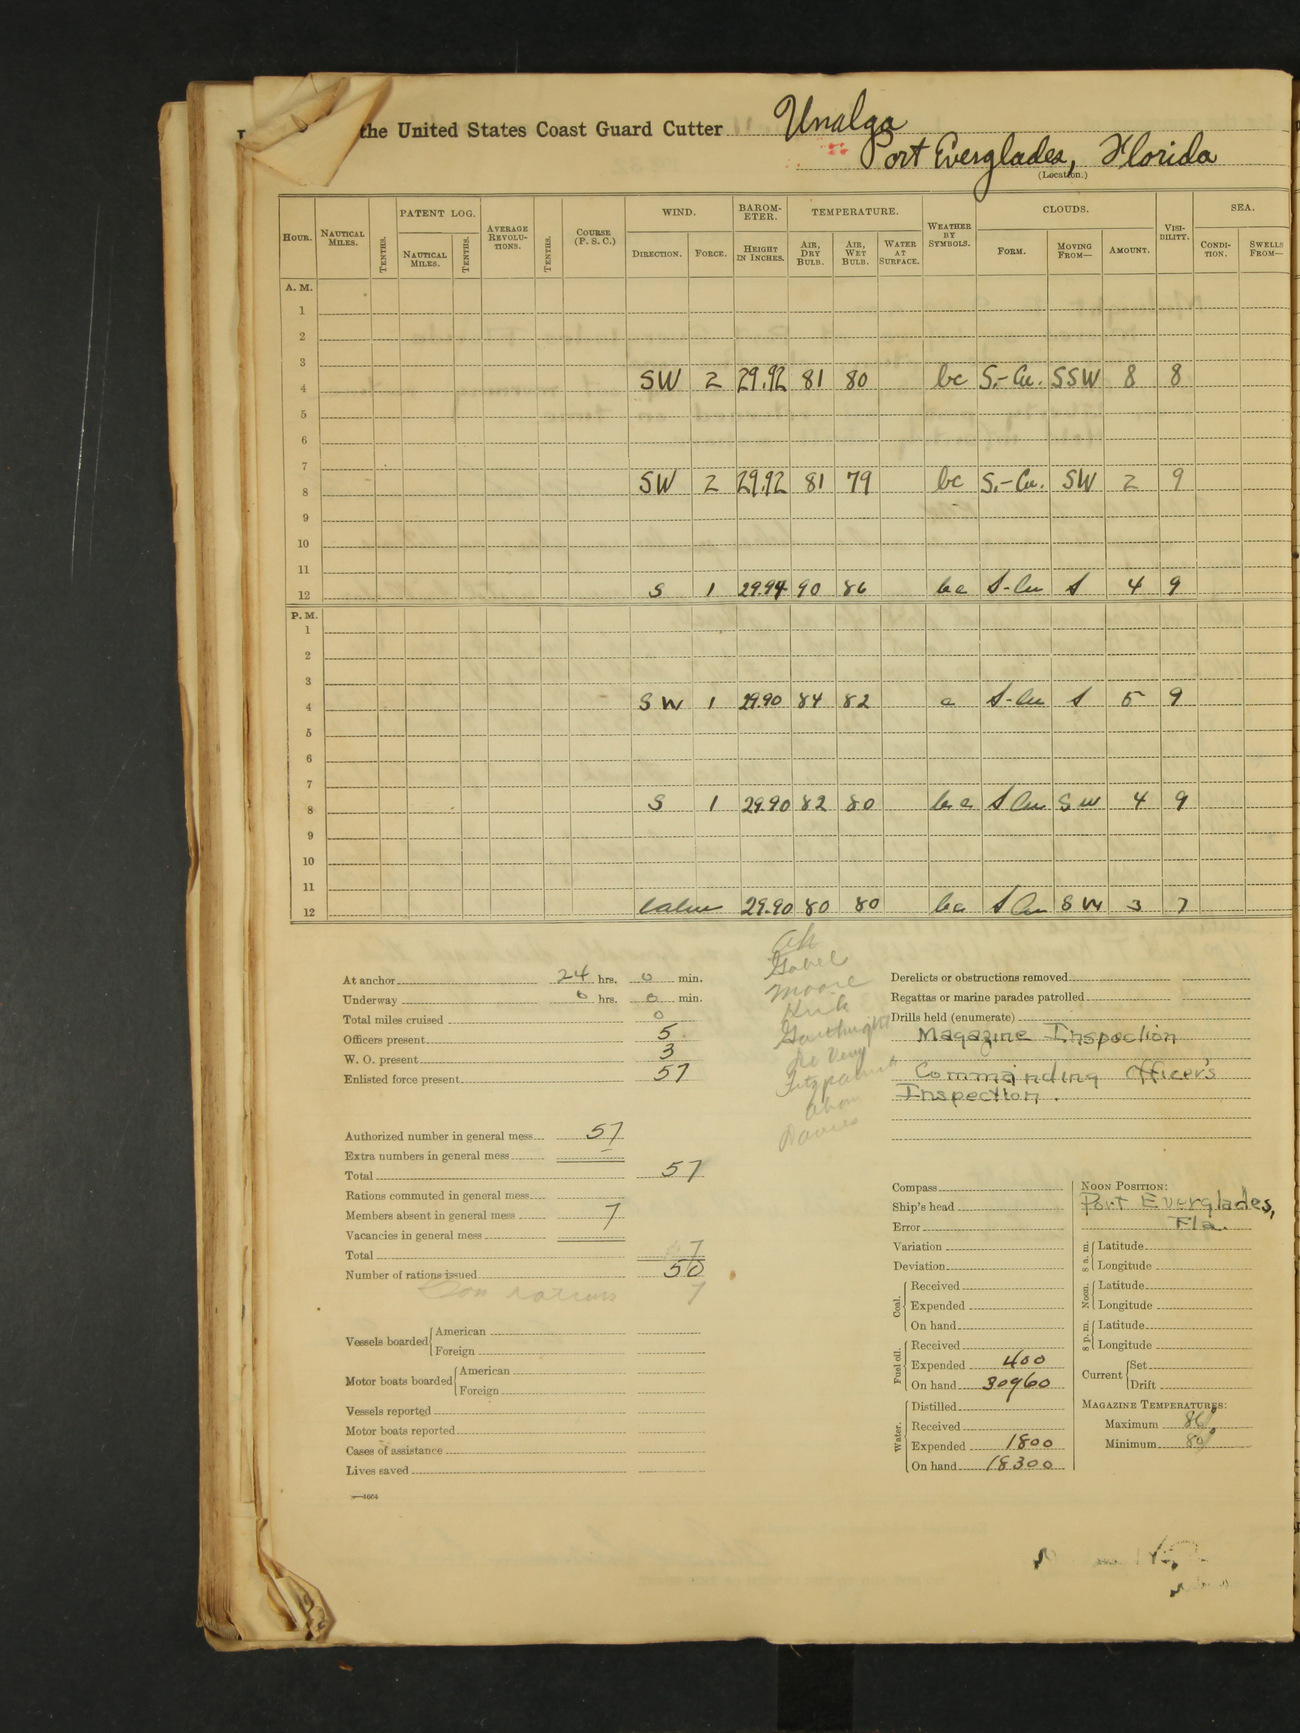 the United States Coast Guard Cutter Unalga
Port Everglades, Florida
(Location.)
HOUR. NAUTICAL MILES. TENTHS. PATENT LOG. NAUTICAL MILES. TENTHS. AVERAGE REVOLUTIONS. TENTHS. COURSE (P. S. C.) WIND. DIRECTION. FORCE. BAROMETER. HEIGHT IN INCHES. TEMPERATURE. AIR, DRY BULB. AIR, WET BULB. WATER AT SURFACE. WEATHER BY SYMBOLS. CLOUDS. FORM. MOVING FROM— AMOUNT. VISIBILITY. SEA. CONDITION. SWELLS FROM—
A. M.
1
2
3
4 SW 2 29.92 81 80 bc S.-Cu. SSW 8 8
5
6
7
8 SW 2 29.92 81 79 bc S.-Cu. SW 2 9
9
10
11
12 S 1 29.94 90 86 bc S-Cu S 4 9
P. M.
1
2
3
4 SW 1 29.90 84 82 c S-Cu S 5 9
5
6
7
8 S 1 29.90 82 80 bc S Cu SW 4 9
9
10
11
12 Calm 29.90 80 80 bc S Cu SW 3 7
At anchor 24 hrs. 0 min.
Underway 0 hrs. 0 min.
Total miles cruised 0
Officers present 5
W. O. present 3
Enlisted force present 57
Authorized number in general mess 57
Extra numbers in general mess –
Total 57
Rations commuted in general mess
Members absent in general mess 7
Vacancies in general mess
Total 7
Number of rations issued 50
Com rations 7
Vessels boarded American
Foreign
Motor boats boarded American
Foreign
Vessels reported
Motor boats reported
Cases of assistance
Lives saved
Gabel
Moore
Kirk
Fitzpatrick
Davies
Derelicts or obstructions removed
Regattas or marine parades patrolled
Drills held (enumerate)
Magazine Inspection
Commanding Officer's
Inspection.
Compass
Ship's head
Error
Variation
Deviation
Coal. Received
Expended
On hand
Fuel oil. Received
Expended 400
On hand 30960
Water. Distilled
Received
Expended 1800
On hand 18300
NOON POSITION:
Port Everglades,
Fla.
8 a. m. Latitude
Longitude
Noon. Latitude
Longitude
8 p. m. Latitude
Longitude
Current Set
Drift
MAGAZINE TEMPERATURES:
Maximum 86°
Minimum 80°